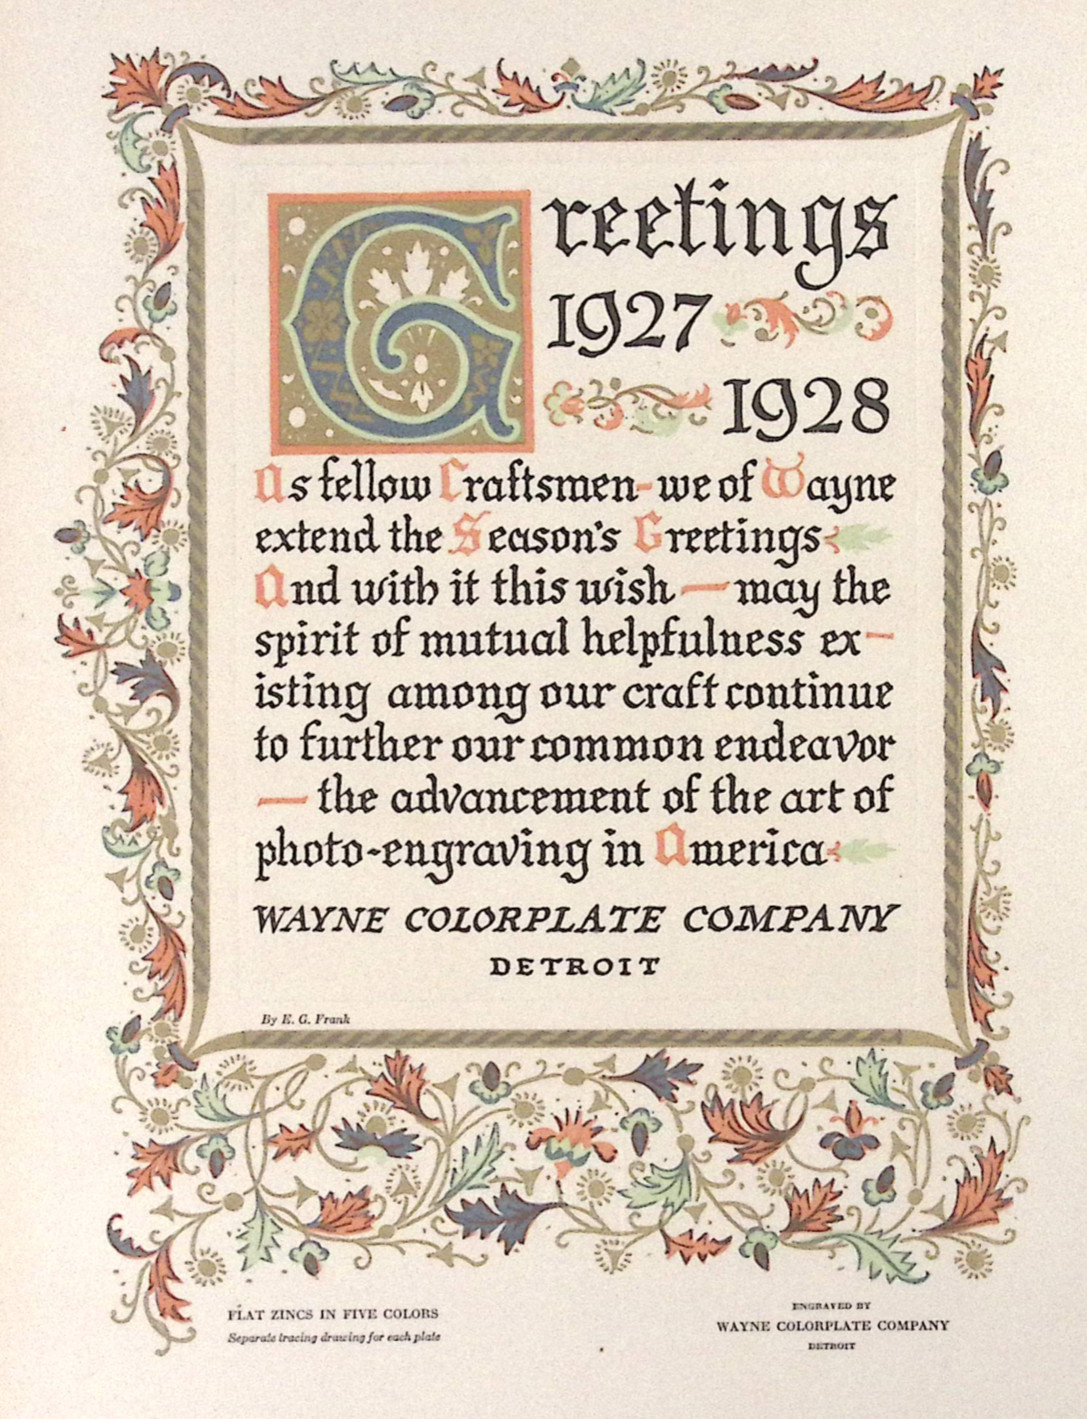 Greetings
1927
1928
As fellow Craftsmen-we of Wayne
extend the Season's Greetings
And with it this wish — may the
spirit of mutual helpfulness ex-
isting among our craft continue
to further our common endeavor
— the advancement of the art of
photo-engraving in America
WAYNE COLORPLATE COMPANY
DETROIT
By E. G. Frank
FLAT ZINCS IN FIVE COLORS
Separate tracing drawing for each plate
ENGRAVED BY
WAYNE COLORPLATE COMPANY
DETROIT